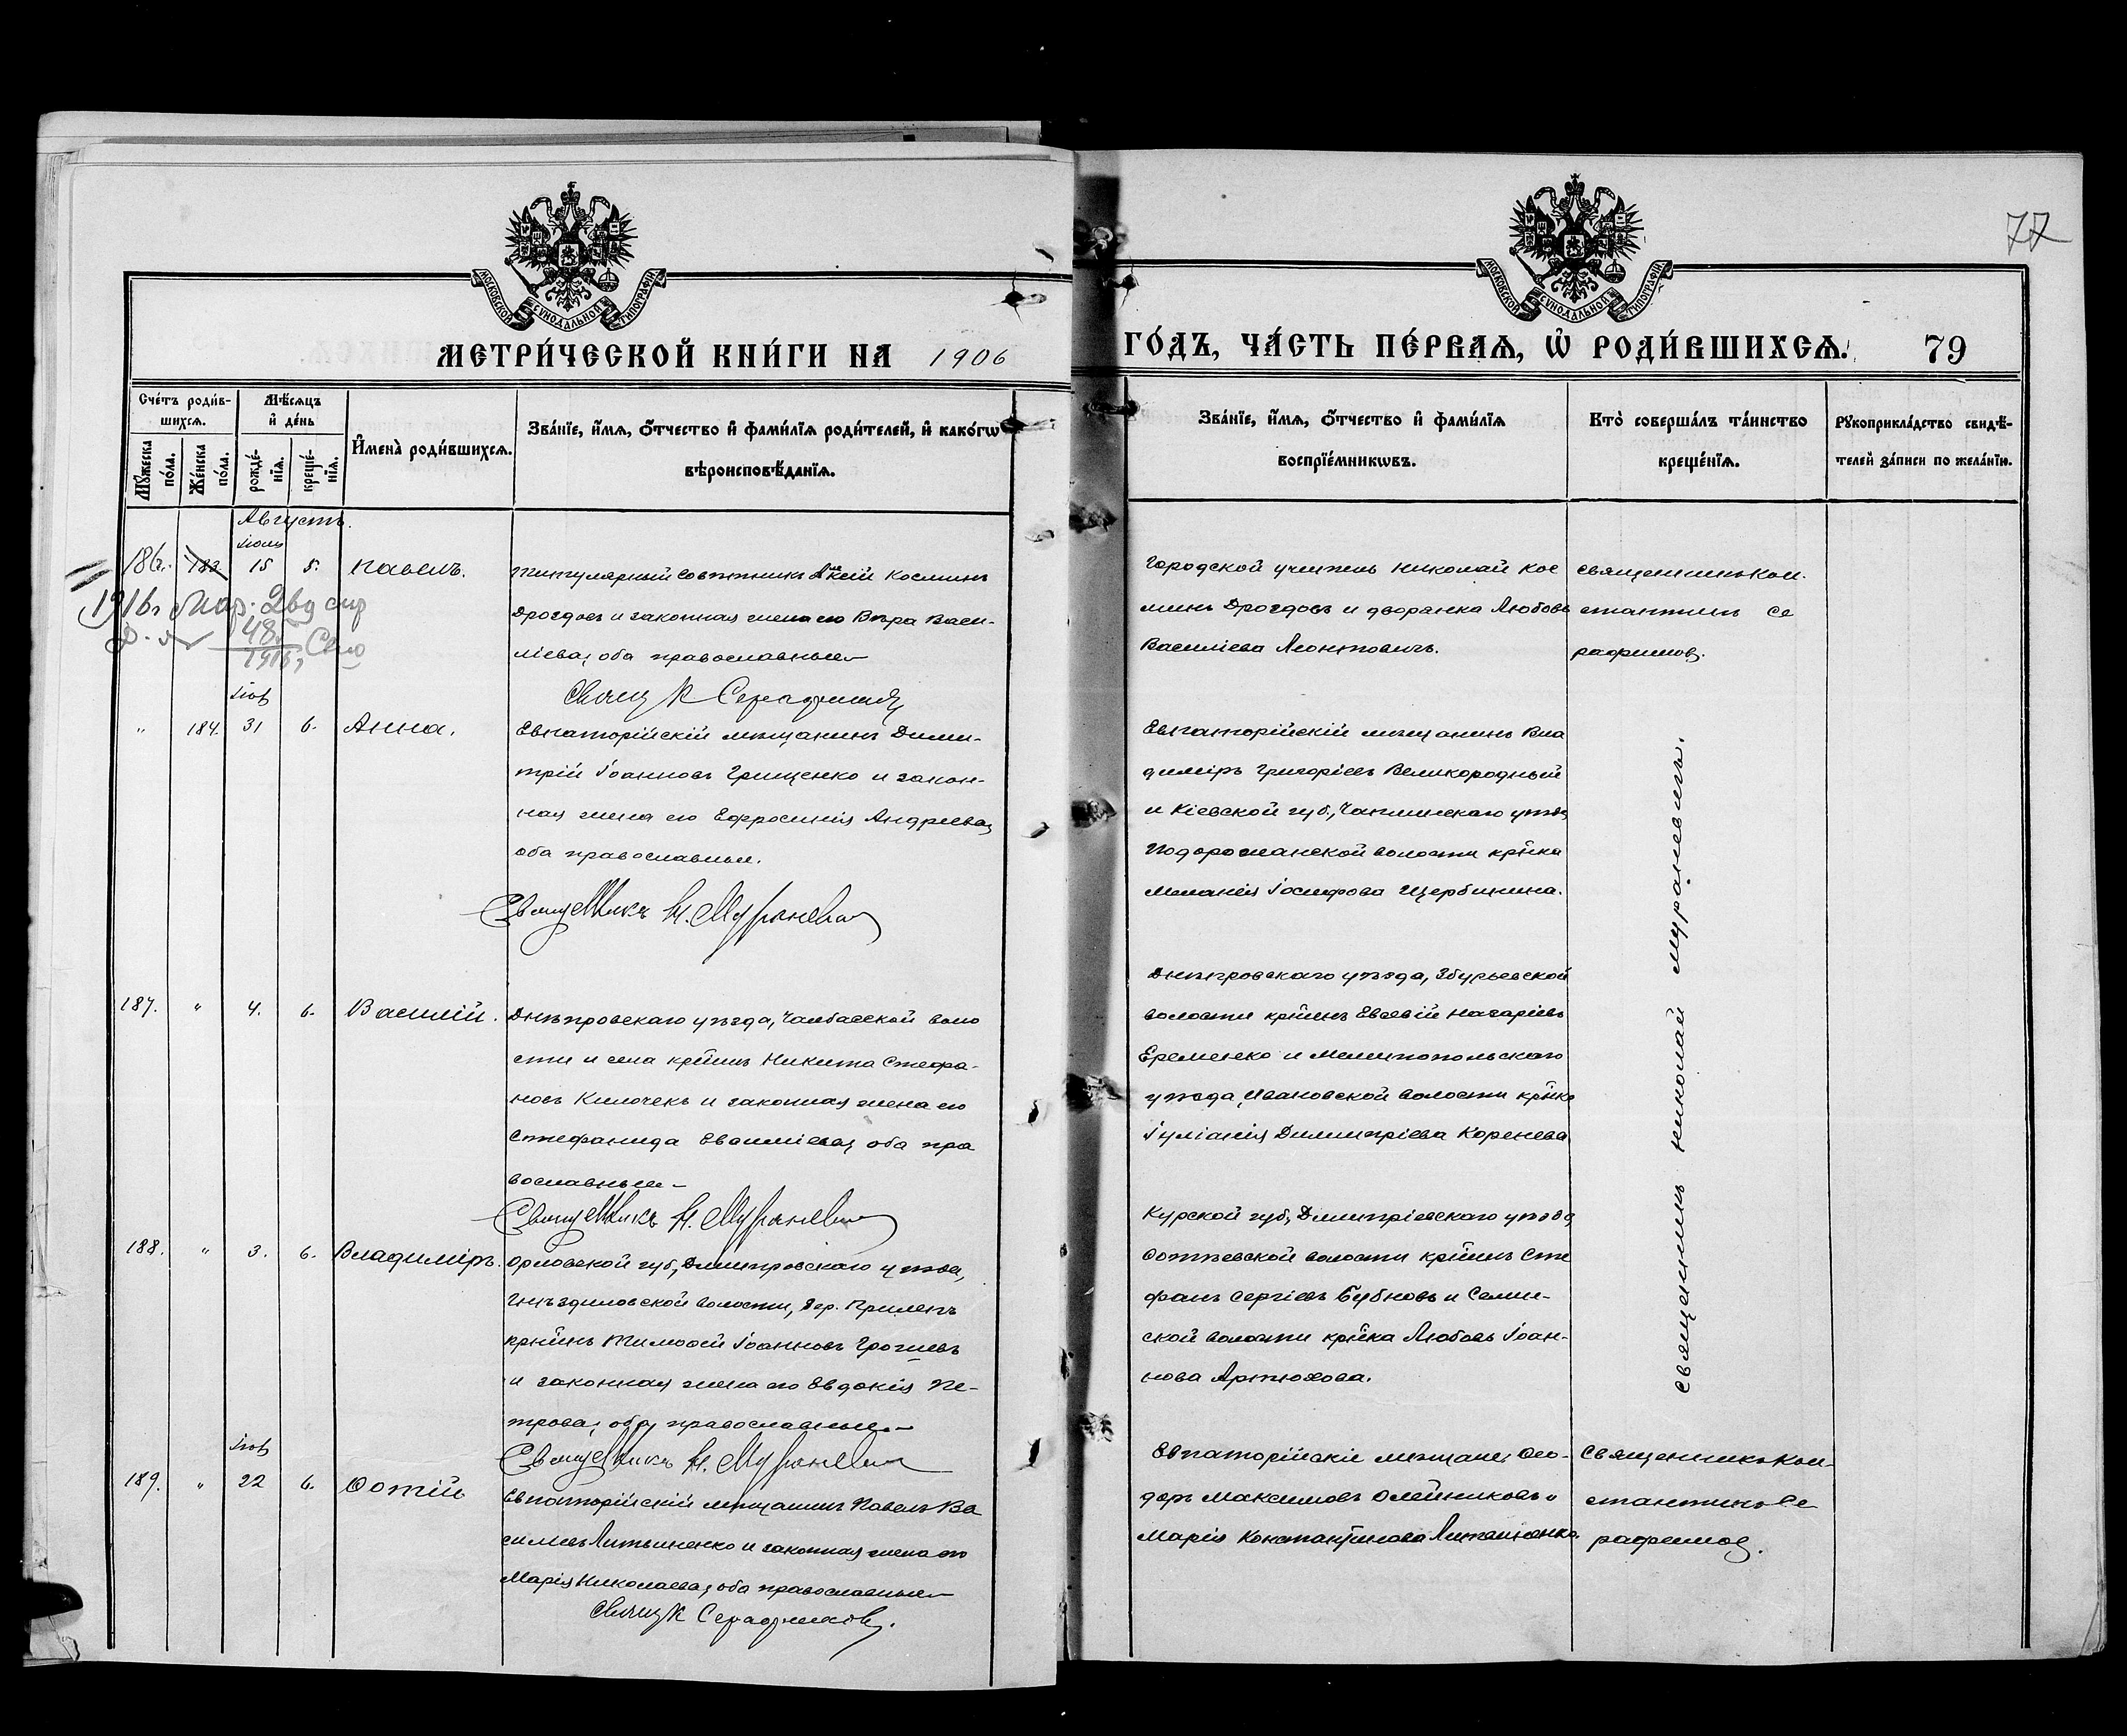 77
МОСКОВСКОЙ СУНОДАЛЬНОЙ ТИПОГРАФІИ
МОСКОВСКОЙ СУНОДАЛЬНОЙ ТИПОГРАФІИ
МЕТРИ́ЧЕСКОЙ КНИ́ГИ НА 1906
ГО́ДЪ, ЧА́СТЬ ПЕ́РВАѦ, Ѡ РОДИ́ВШИХСѦ. 79
Сче́тъ роди́в-
шихсѧ.
Мѣ́сѧцъ
и҆ де́нь
Мꙋ́жеска
по́ла.
Же́нска
по́ла.
рожде́-
нїѧ.
креще́-
нїѧ.
И҆мена̀ роди́вшихсѧ.
Зва́нїе, и҆́мѧ, ѻ҆́тчество и҆ фами́лїѧ роди́телей, и҆ како́гѡ
вѣроисповѣ́данїѧ.
Зва́нїе, и҆́мѧ, ѻ҆́тчество и҆ фами́лїѧ
воспрїе́мникѡвъ.
Кто̀ соверша́лъ та́инство
креще́нїѧ.
Рꙋкоприкла́дство свидѣ́-
телей за́писи по жела́нїю.
Августъ.
Іюль
186. 183 15 5. Павелъ.
1916 г. Мар. 2 выд
48
1916
Титулярный Совѣтникъ Алексій Косминъ
Дроздовъ и законная жена его Вѣра Васи-
ліева, оба православные
Свящ К Серафимовъ
Городской учитель Николай Кос
минъ Дроздовъ и дворянка Любовь
Василіева Леонтовичъ.
Священникъ Кон-
стантинъ Се
рафимовъ.
Іюль
" 184. 31 6. Анна.
Евпаторійскій мѣщанинъ Дими-
трій Іоанновъ Грищенко и закон-
ная жена его Ефросинія Андреева,
оба православные.
Священникъ Н. Мураневичъ
Евпаторійскій мѣщанинъ Вла
димiръ Григоріевъ Великородный
и Кіевской губ., уѣзда
волости крїнка
Меланія Іосифова Щербинина.
Священникъ Николай Мураневичъ.
187. " 4. 6. Василій.
Днѣпровскаго уѣзда, Чалбасской воло
сти и села крїнинъ Никита Стефа-
новъ Килочекъ и законная жена его
Стефанида Евсиміева, оба пра
вославные –
Священникъ Н. Мураневичъ
Днѣпровскаго уѣзда, Збурьевской
волости крїнинъ Евсевій Назаріевъ
Еременко и Мелитопольскаго
уѣзда, Ивановской волости крїнка
Іуліанія Димитріева Коренева
188. " 3. 6. Владиміръ.
Орловской губ., Дмитровскаго уѣзда,
Гнѣздиловской волости, дер. Прилепъ
крїнинъ Тимоѳей Іоанновъ Грогиевъ
и законная жена его Евдокія Пе-
трова, оба православные. –
Священникъ Н. Мураневичъ
Курской губ., Дмитріевскаго уѣзда
волости крїнинъ Сте
фанъ Сергіевъ Бубновъ и Селин-
ской волости крїнка Любовь Іоан-
нова Артюхова.
Іюль
189. " 22 6. Ѳотій
Евпаторійскій мѣщанинъ Павелъ Ва
силіевъ Литвиненко и законная жена его
Марія Николаева, оба православные
Свящ К Серафимовъ.
Евпаторійскіе мѣщане, Ѳео-
доръ Максимовъ Олейниковъ и
Марія Константинова Литвиненко.
Священникъ Кон-
стантинъ Се
рафимовъ.